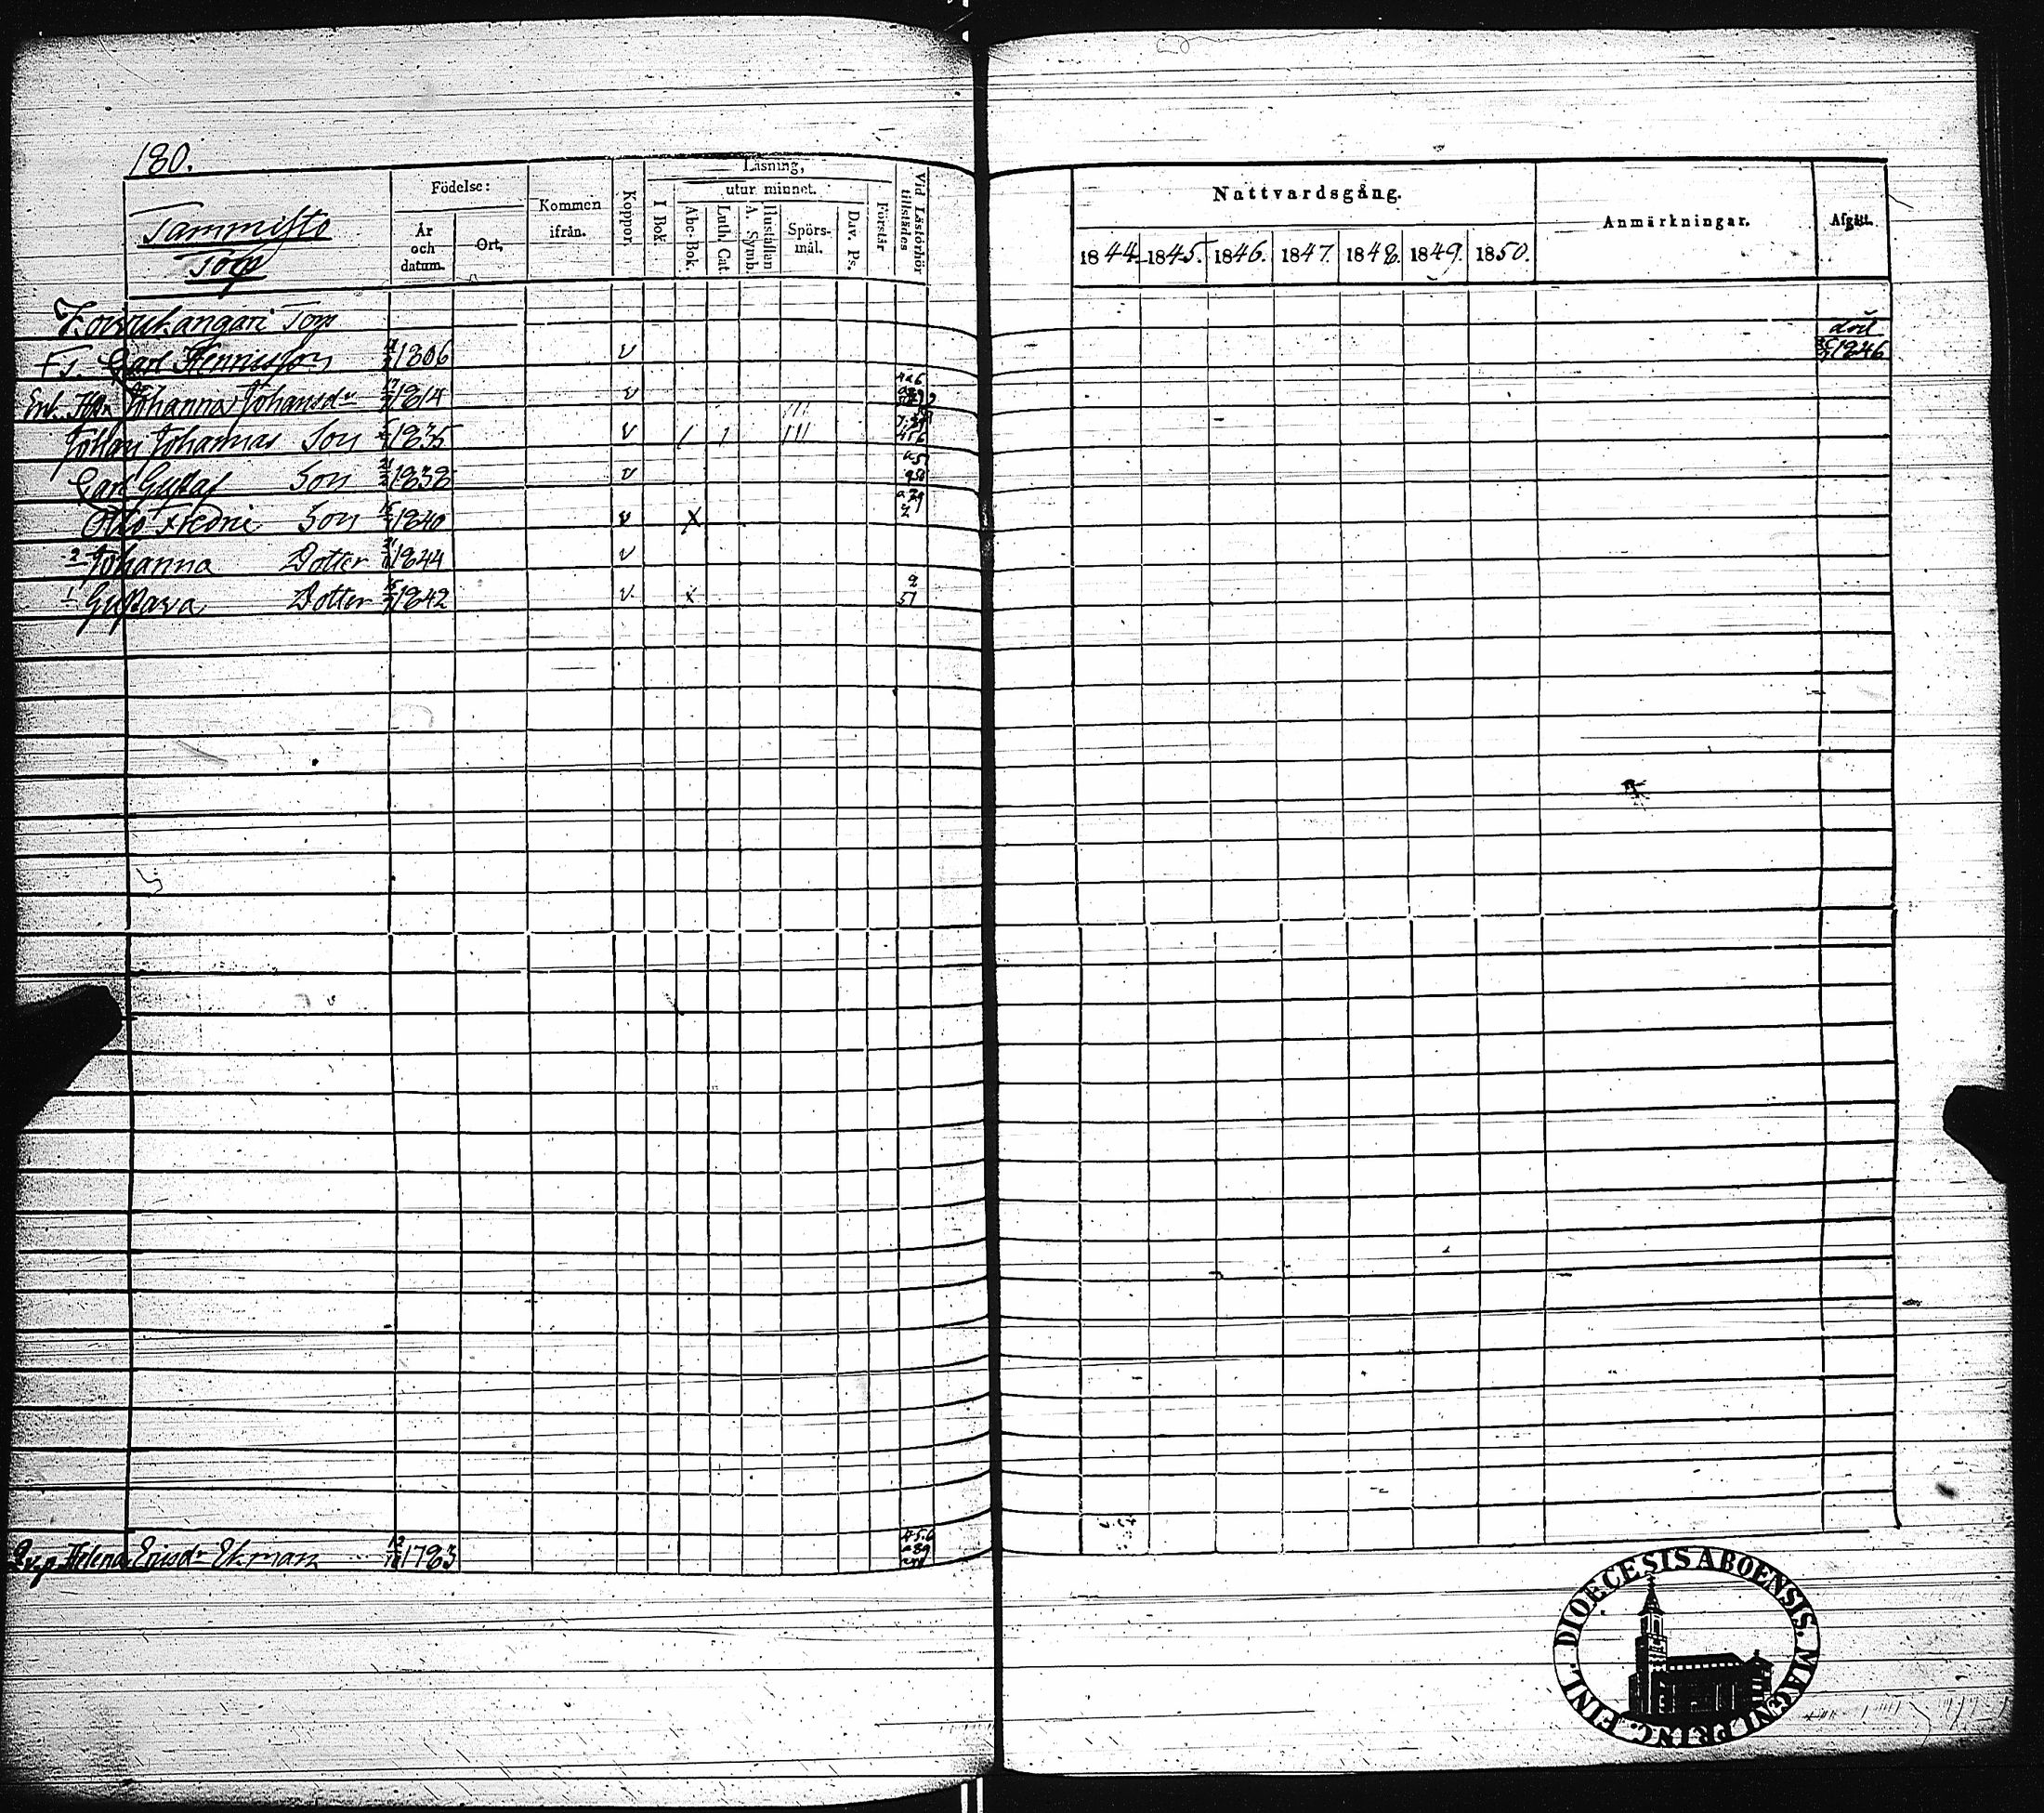 180.
Tammisto
Torp
Födelse:
År och datum.
Ort.
Kommen ifrån.
Koppor.
Läsning,
utur minnet.
I Bok.
Abc-Bok.
Luth. Cat.
A. Symb.
Hustaflan
Spörs-mål.
Dav. Ps.
Förstår
Vid Läsförhör tillstädes
Nattvardsgång.
1844. 1845. 1846. 1847. 1848. 1849. 1850.
Anmärkningar.
Afgått.
Torp
Carl Henricsson 1806 v död 1846
Enk. Johanna Johansdr 1814 v
Johan Johannes Son 1835 v
Carl Gustaf Son 1838 v
Otto Fredric Son 1840 v X
2 Johanna Dotter 1844 v
1 Gustava Dotter 1842 v x 51
Helena Ericsdr Ekman 1783
DIOECESIS ABOENSIS. MAGNI PRINC. FINL.